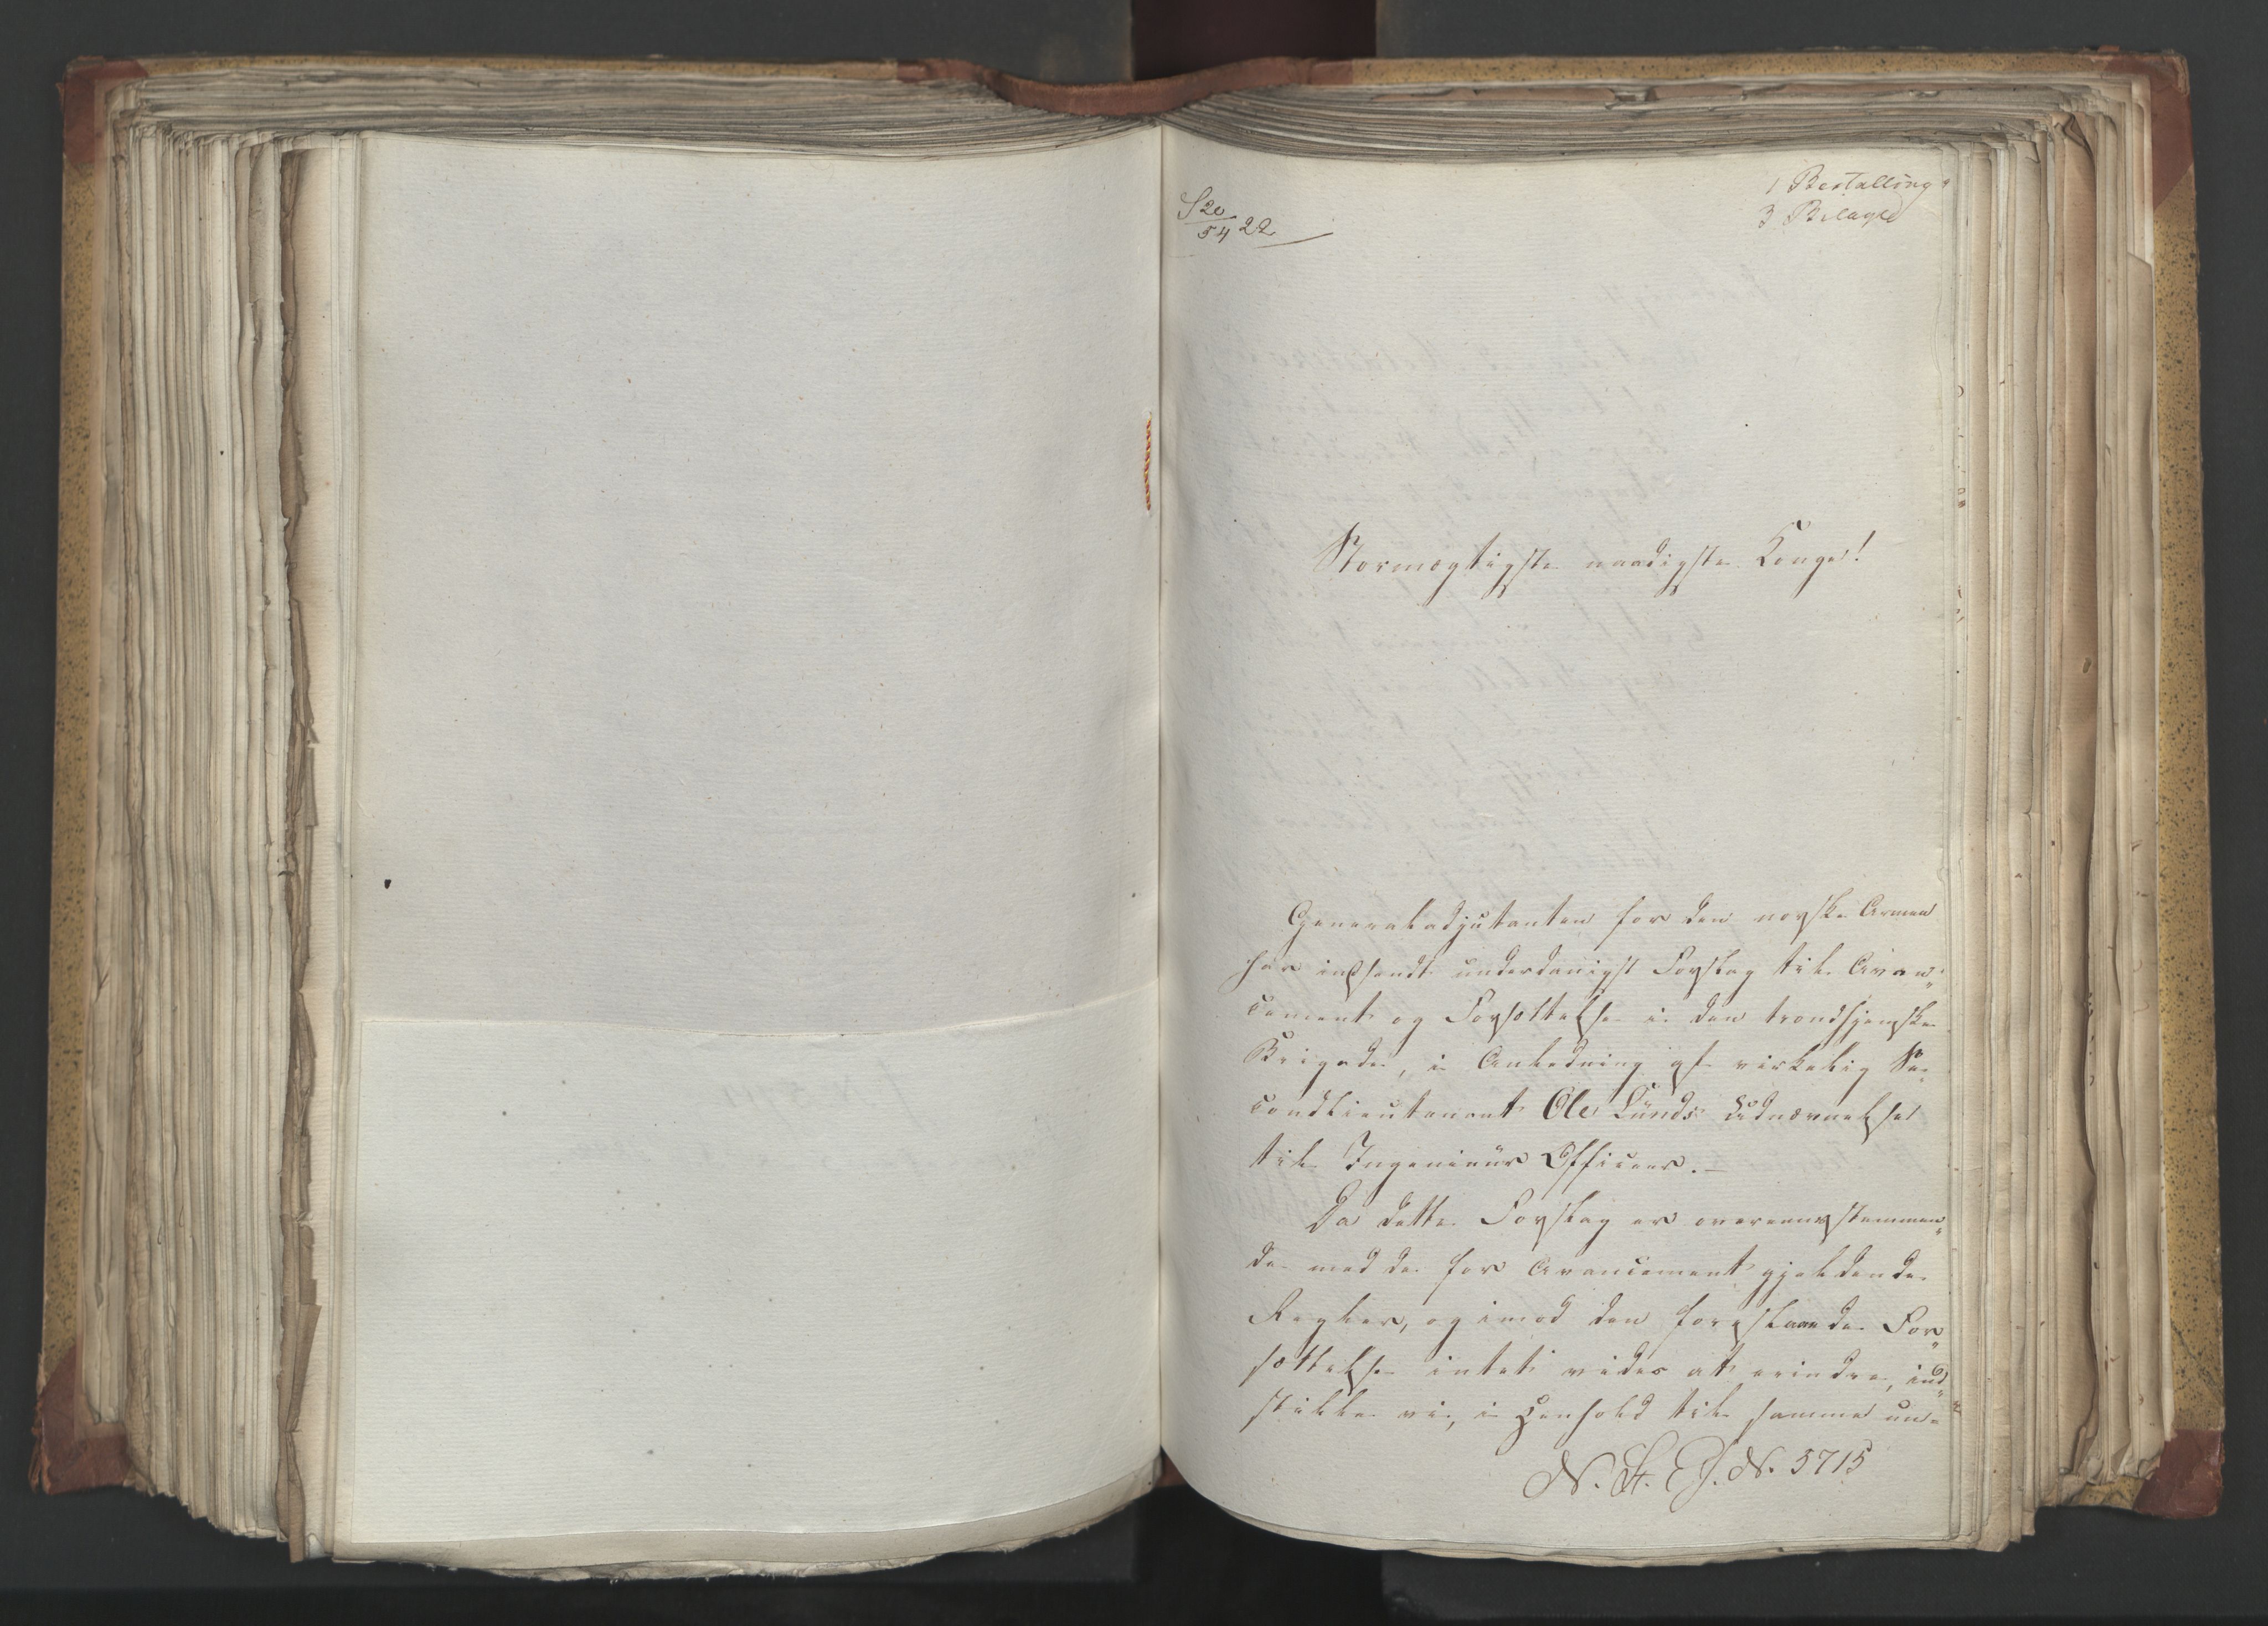 S 20/54 22
1 Bestalling
3 Bilage
Stormægtigste naadigste Konge!
Generaladjutanten for den norske Armee
har indsendt underdanigst Forslag til Avan„
cement og Forsættelse i den trondhjemske
Brigade, i Anledning af virkelig Se„
condlieutenant Ole Lunds Udnævnelse
til Ingenieur Officeer. —
Da dette Forslag er overeensstemmen„
de med de for Avancement gjældende
Regler, og imod den foreslaaede For„
sættelse intet vides at erindre, ind„
stille vi, i Henhold til samme un„
N. 5715